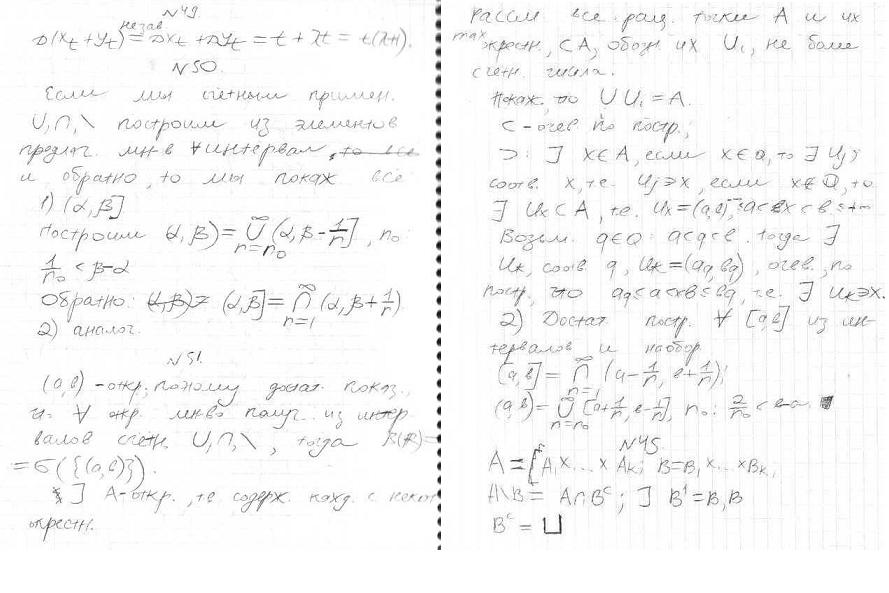 N49.
незав
D(x_t + y_t) = Dx_t + Dy_t = t + λt = t(λ+1).
N50.
Если мы счетным примен.
∪,∩,\ построим из элементов
предлаг. мн-в ∀ интервал, то все
и обратно, то мы покаж все
1) (α,β]
Построим (α,β) = ∪_{n=n₀}^∞ (α,β-1/n], n₀:
1/n₀ < β-α
Обратно: (α,β) = (α,β] = ∩_{n=1}^∞ (α,β+1/n)
2) аналог.
N51.
(a,b) - откр, поэтому достат. показ.,
∀ откр. мн-во получ. из интер
валов счетн. ∪,∩,\, тогда B(R)=
= σ({(a,b)}).
∃ A-откр., те содерж. кажд. с некот
окрестн.
Рассм. все рац. точки A и их
max
окрестн, ⊂A, обозн их U_i, не более
счетн. числа.
Покаж. то ∪U_i = A.
⊂ - очев по постр.;
⊃: ∃ x∈A, если x∈Q, то ∃ U_j,
соотв. x, т.е. U_j∋x, если x∉Q, то
∃ U_x⊂A, т.е. U_x=(a,b), -∞≤a<x<b≤+∞
Возьм. q∈Q: a<q<b, тогда ∃
U_k, соотв. q, U_k=(a_q,b_q), очев., по
постр, что a_q≤a<x<b≤b_q, т.е. ∃ U_k∋x.
2) Достат. постр. ∀ [a,b] из ин-
тервалов и наобор.
[a,b] = ∩_{n=1}^∞ (a-1/n, b+1/n);
(a,b) = ∪_{n=n₀}^∞ [a+1/n, b-1/n], n₀: 2/n₀ < b-a.
N45.
A = A₁×...×A_k; B=B₁×...×B_k;
A\B = A∩B^c; ∃ B¹=B₁B
B^c = ⊔